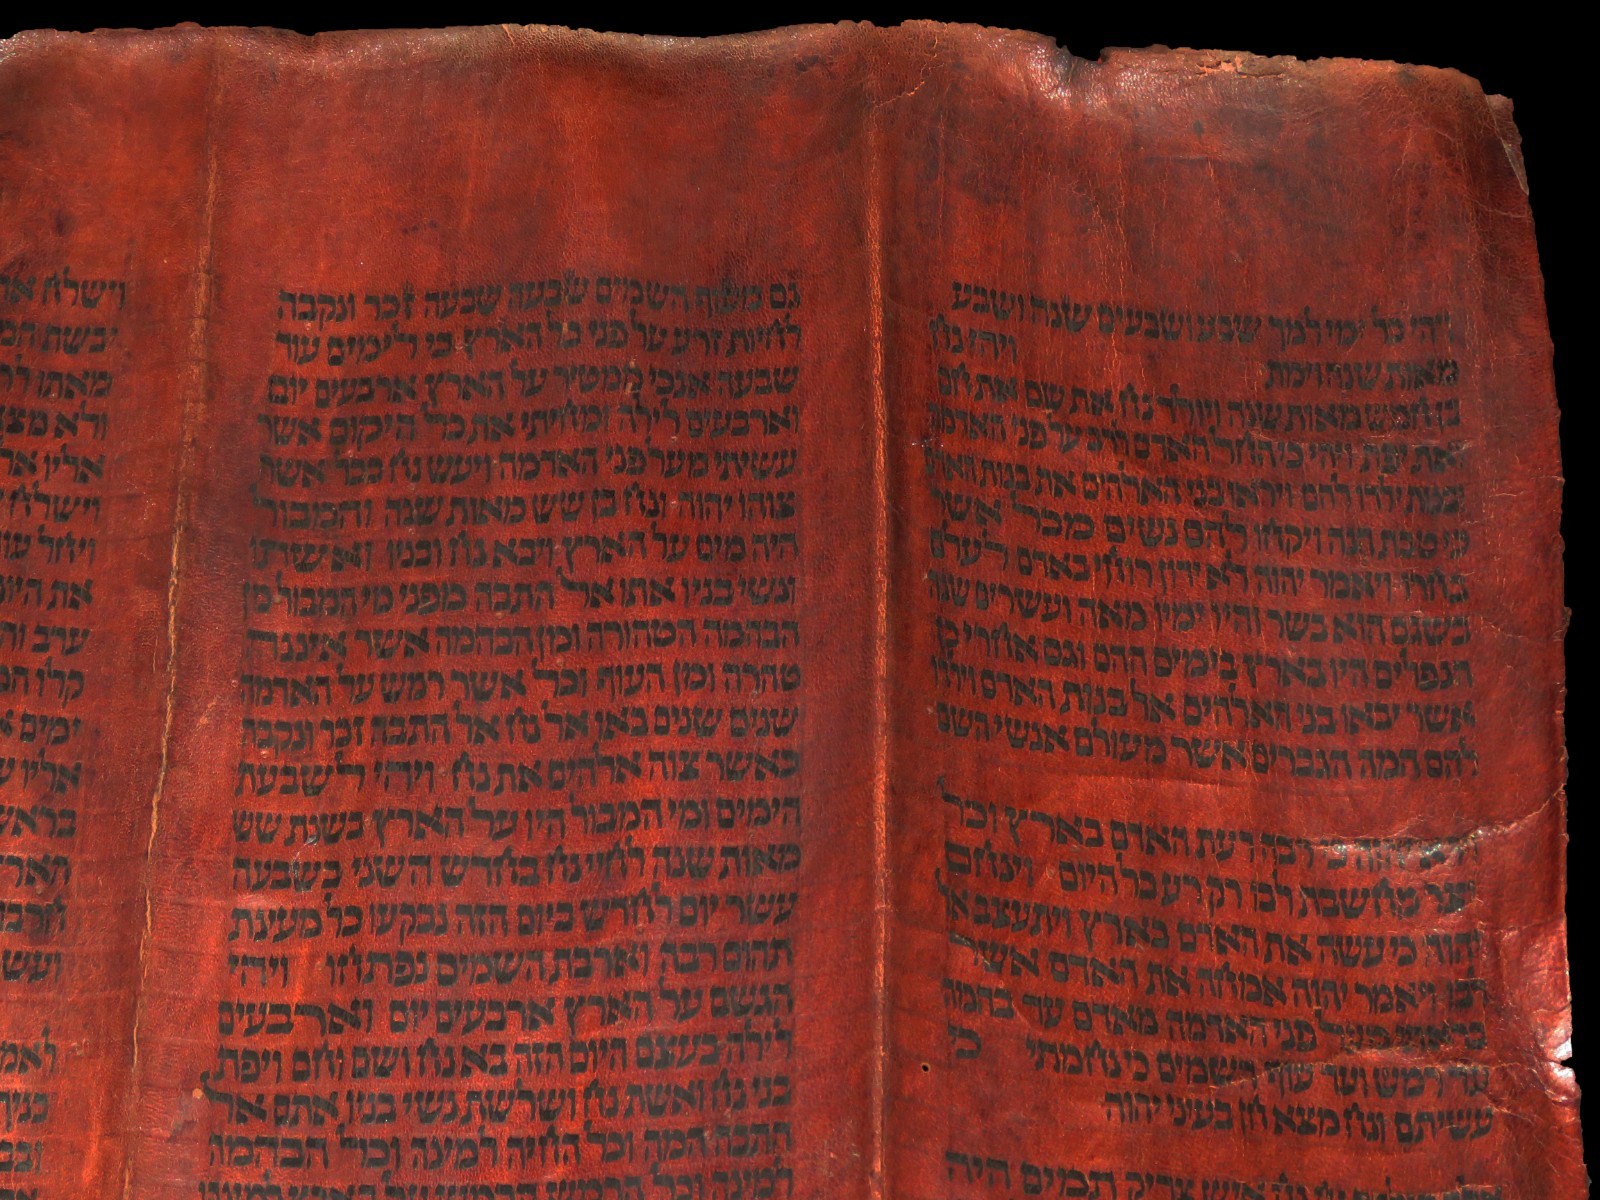 ויהי כל ימי למך שבע ושבעים שנה ושבע
מאות שנה וימת ויהי נח
בן חמש מאות שנה ויולד נח את שם את חם
ואת יפת ויהי כי החל האדם לרב על פני האדמה
ובנות ילדו להם ויראו בני האלהים את בנות האדם
כי טבת הנה ויקחו להם נשים מכל אשר
בחרו ויאמר יהוה לא ידון רוחי באדם לעלם
בשגם הוא בשר והיו ימיו מאה ועשרים שנה
הנפלים היו בארץ בימים ההם וגם אחרי כן
אשר יבאו בני האלהים אל בנות האדם וילדו
להם המה הגברים אשר מעולם אנשי השם
וירא יהוה כי רבה רעת האדם בארץ וכל
יצר מחשבת לבו רק רע כל היום וינחם
יהוה כי עשה את האדם בארץ ויתעצב אל
לבו ויאמר יהוה אמחה את האדם אשר
בראתי מעל פני האדמה מאדם עד בהמה
עד רמש ועד עוף השמים כי נחמתי כי
עשיתם ונח מצא חן בעיני יהוה
נח איש צדיק תמים היה
גם מעוף השמים שבעה שבעה זכר ונקבה
לחיות זרע על פני כל הארץ כי לימים עוד
שבעה אנכי ממטיר על הארץ ארבעים יום
וארבעים לילה ומחיתי את כל היקום אשר
עשיתי מעל פני האדמה ויעש נח ככל אשר
צוהו יהוה ונח בן שש מאות שנה והמבול
היה מים על הארץ ויבא נח ובניו ואשתו
ונשי בניו אתו אל התבה מפני מי המבול מן
הבהמה הטהורה ומן הבהמה אשר איננה
טהרה ומן העוף וכל אשר רמש על האדמה
שנים שנים באו אל נח אל התבה זכר ונקבה
כאשר צוה אלהים את נח ויהי לשבעת
הימים ומי המבול היו על הארץ בשנת שש
מאות שנה לחיי נח בחדש השני בשבעה
עשר יום לחדש ביום הזה נבקעו כל מעינת
תהום רבה וארבת השמים נפתחו ויהי
הגשם על הארץ ארבעים יום וארבעים
לילה בעצם היום הזה בא נח ושם וחם ויפת
בני נח ואשת נח ושלשת נשי בניו אתם אל
התבה המה וכל החיה למינה וכל הבהמה
למינה וכל הרמש הרמש על הארץ למינהו
וישלח
יבשת
מאתו
ולא
אליו
וישלח
ויחל
את
ערב
קלו
ימים
אליו
בראש
ועש